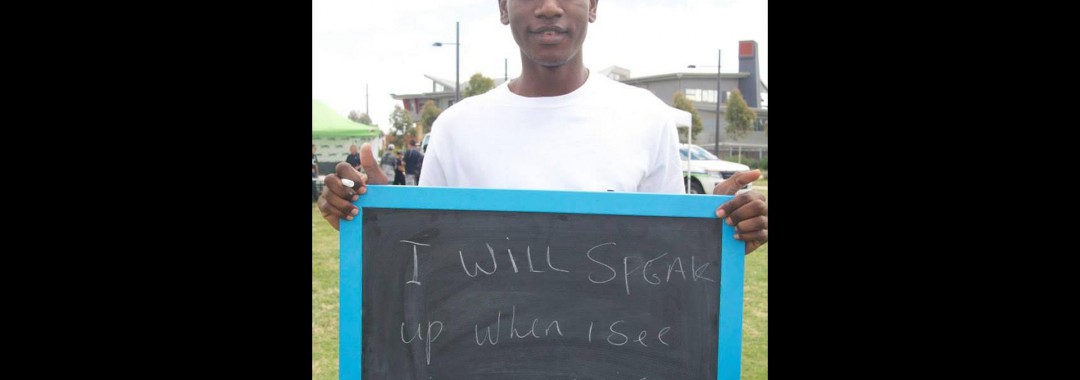 I WiLL SPEAK
up when i see